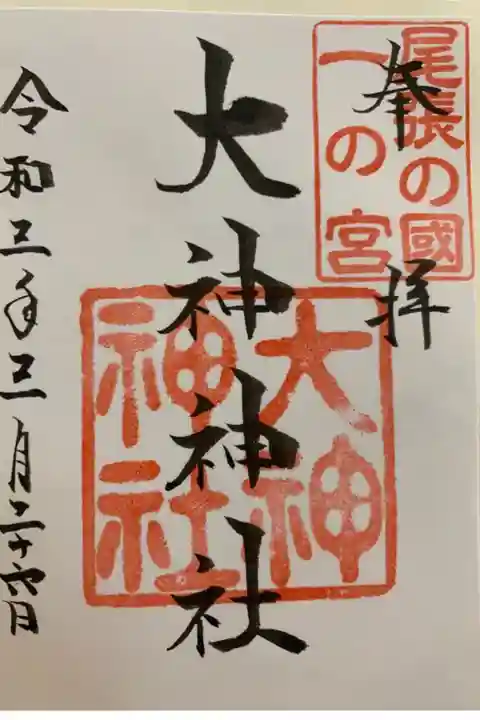 尾張の國
一の宮
奉拝
大神神社
大神
神社
令和三年三月二十六日